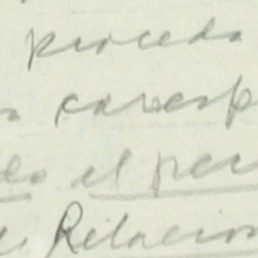 proceda
corresp
el per
de Relacion